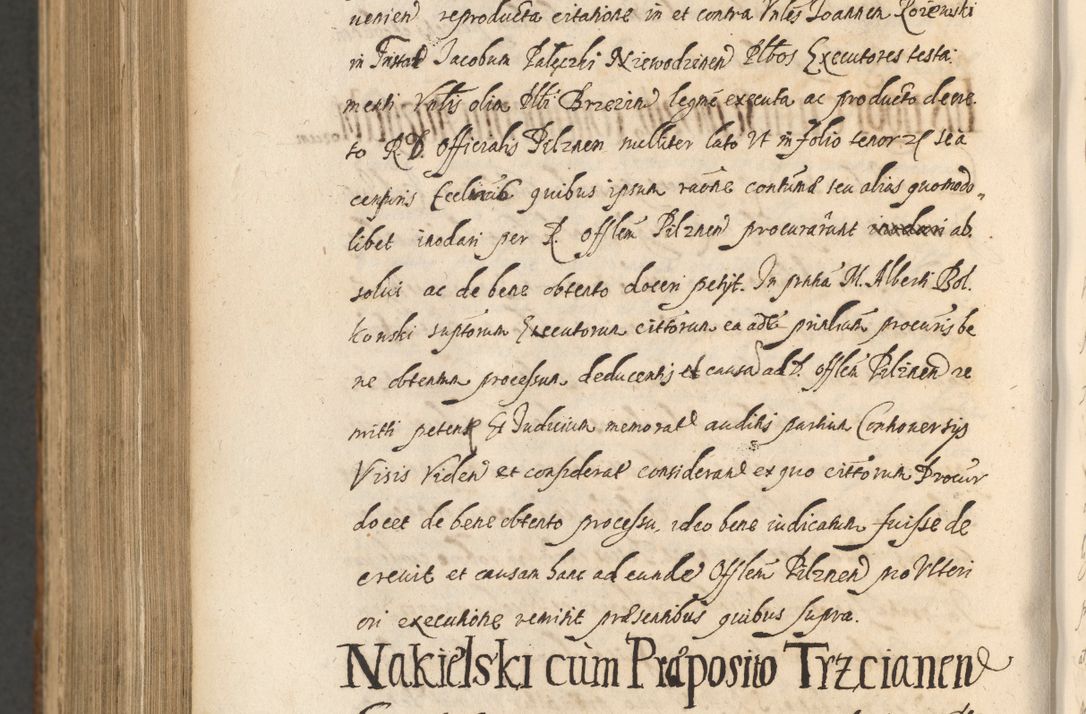 uenien reproducta citatione in et contra Vnles Joannen Rozenski
in Instal Jacobum Paleczki Niewodzinen Plbos Executores testa
menti Vnlis olim Plbi Brzezin legne executa ac producto decre
to R. D. Officialis Pilznen nulliter lato Vt in folio tenor sea
censuris Ecclincis quibus ipsum raone contuma seu alias quomodo
libet inodari per R. Offlem Pilznen procurarunt inodari ab
solui ac de bene obtento doceri petijt. In pntia M. Alberti Bol
konski suptorum Executorum cittorum ea adte printium procuris be
ne obtentum processum deducentis et causa ad D. Offlem Pilznen re
mitti petens Et Judicium memorat auditis partium Controuersijs
Visis Viden et considerat consideran ex quo cittorum Procur
docet de bene obtento processu, ideo bene iudicatum fuisse de
creuit et causam hanc ad eunde Offlem Pilznen pro Vlteri
ori executione remitit præsentibus quibus supra.
Nakielski cum Præposito Trzcianen